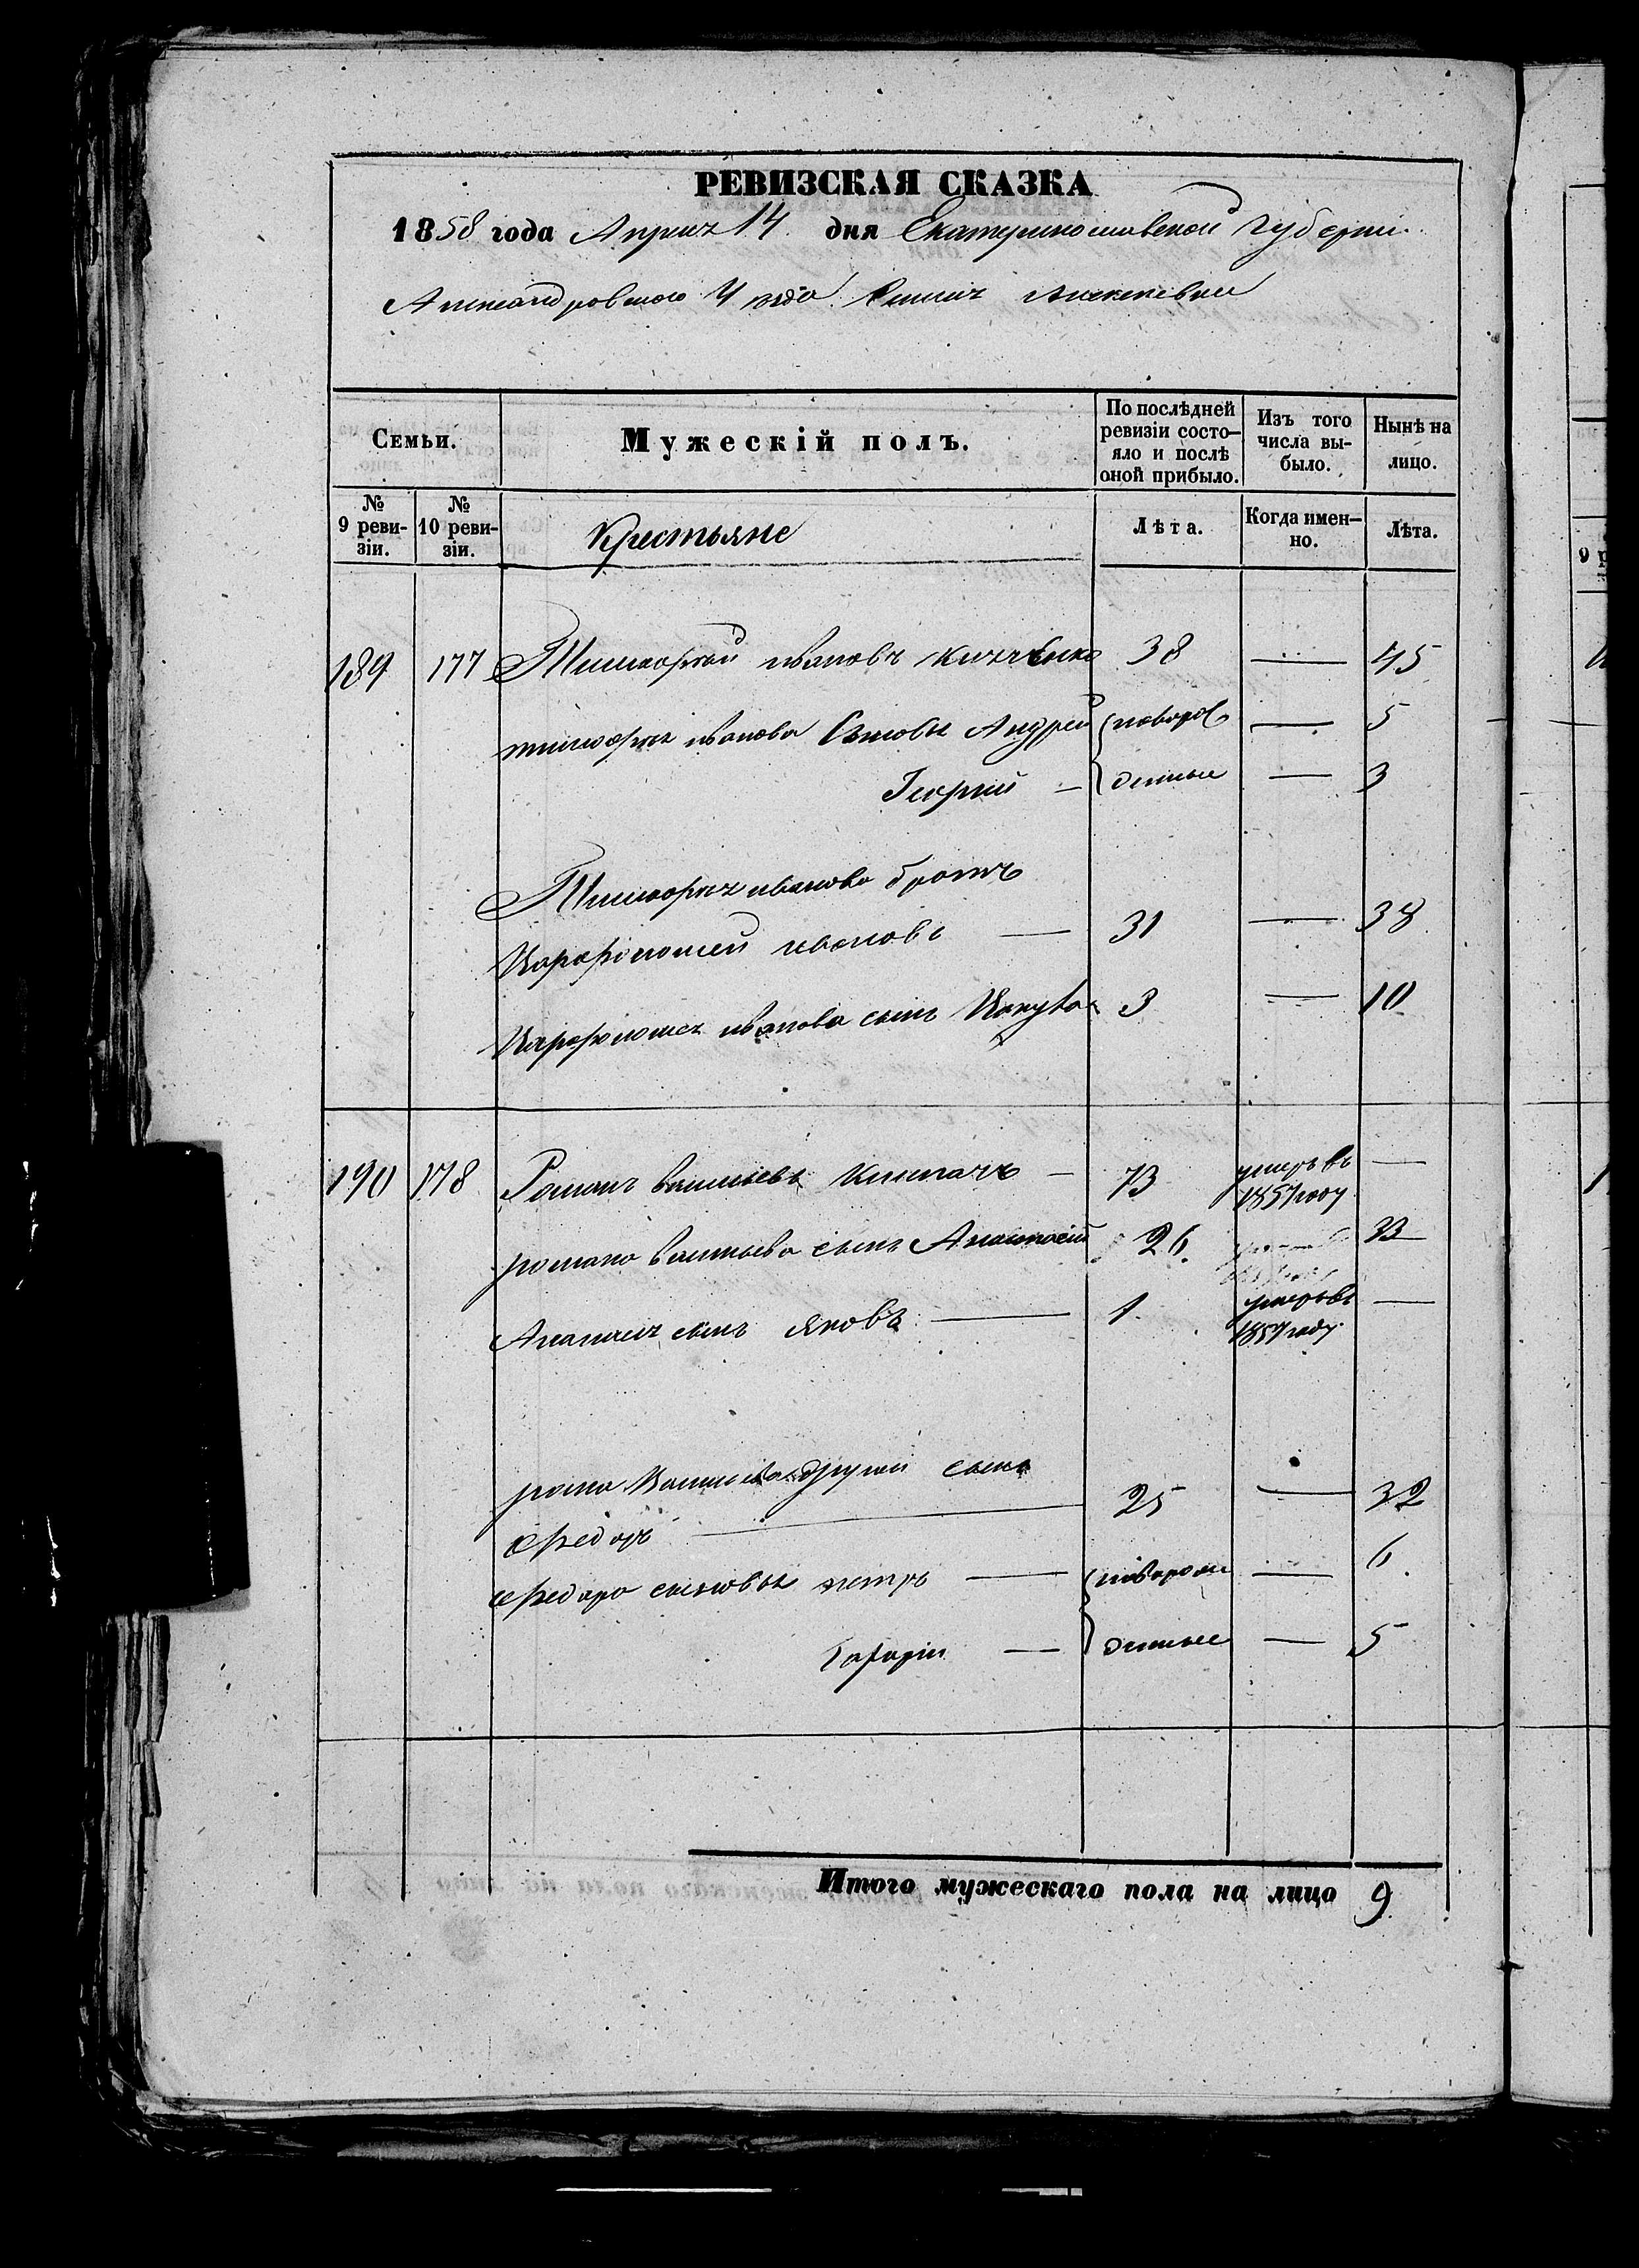 РЕВИЗСКАЯ СКАЗКА
1858 года Апреля 14 дня Екатеринославской Губерніи
Александровского Уезда Селенія
Семьи.
Мужескій полъ.
По послѣдней ревизіи состо-яло и послѣ оной прибыло.
Изъ того числа вы-было.
Нынѣ на лицо.
№ 9 реви-зіи.
№ 10 реви-зіи.
Крестьяне
Лѣта.
Когда имен-но.
Лѣта.
189 177 Тимофей ивановъ 38 — 45
тимофея иванова Сыновья Андрей новорож — 5
Георгий — денные — 3
Тимофея иванова братъ
ивановъ — 31 — 38
иванова сынъ 3 — 10
190 178 Романъ васильевъ — 73 умеръ въ 1857 году —
романа васильева сынъ Афанасій 26. 33
Афанасия сынъ яковъ — 1. умеръ въ 1857 году —
рома Васильева другий сынъ
Федоръ — 25 — 32
Федора сыновья петръ — новорож — 6.
— денные — 5
Итого мужескаго пола на лицо 9